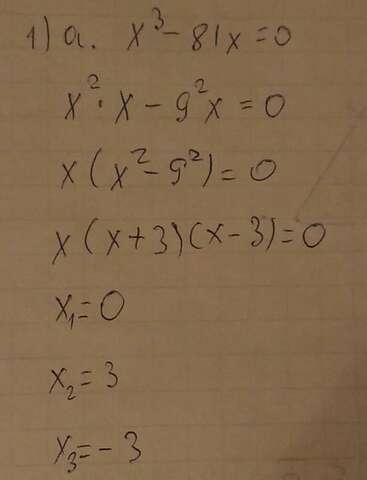 1) a. x³ - 81x = 0
x² · x - 9²x = 0
x(x² - 9²) = 0
x(x+3)(x-3) = 0
x₁ = 0
x₂ = 3
x₃ = -3